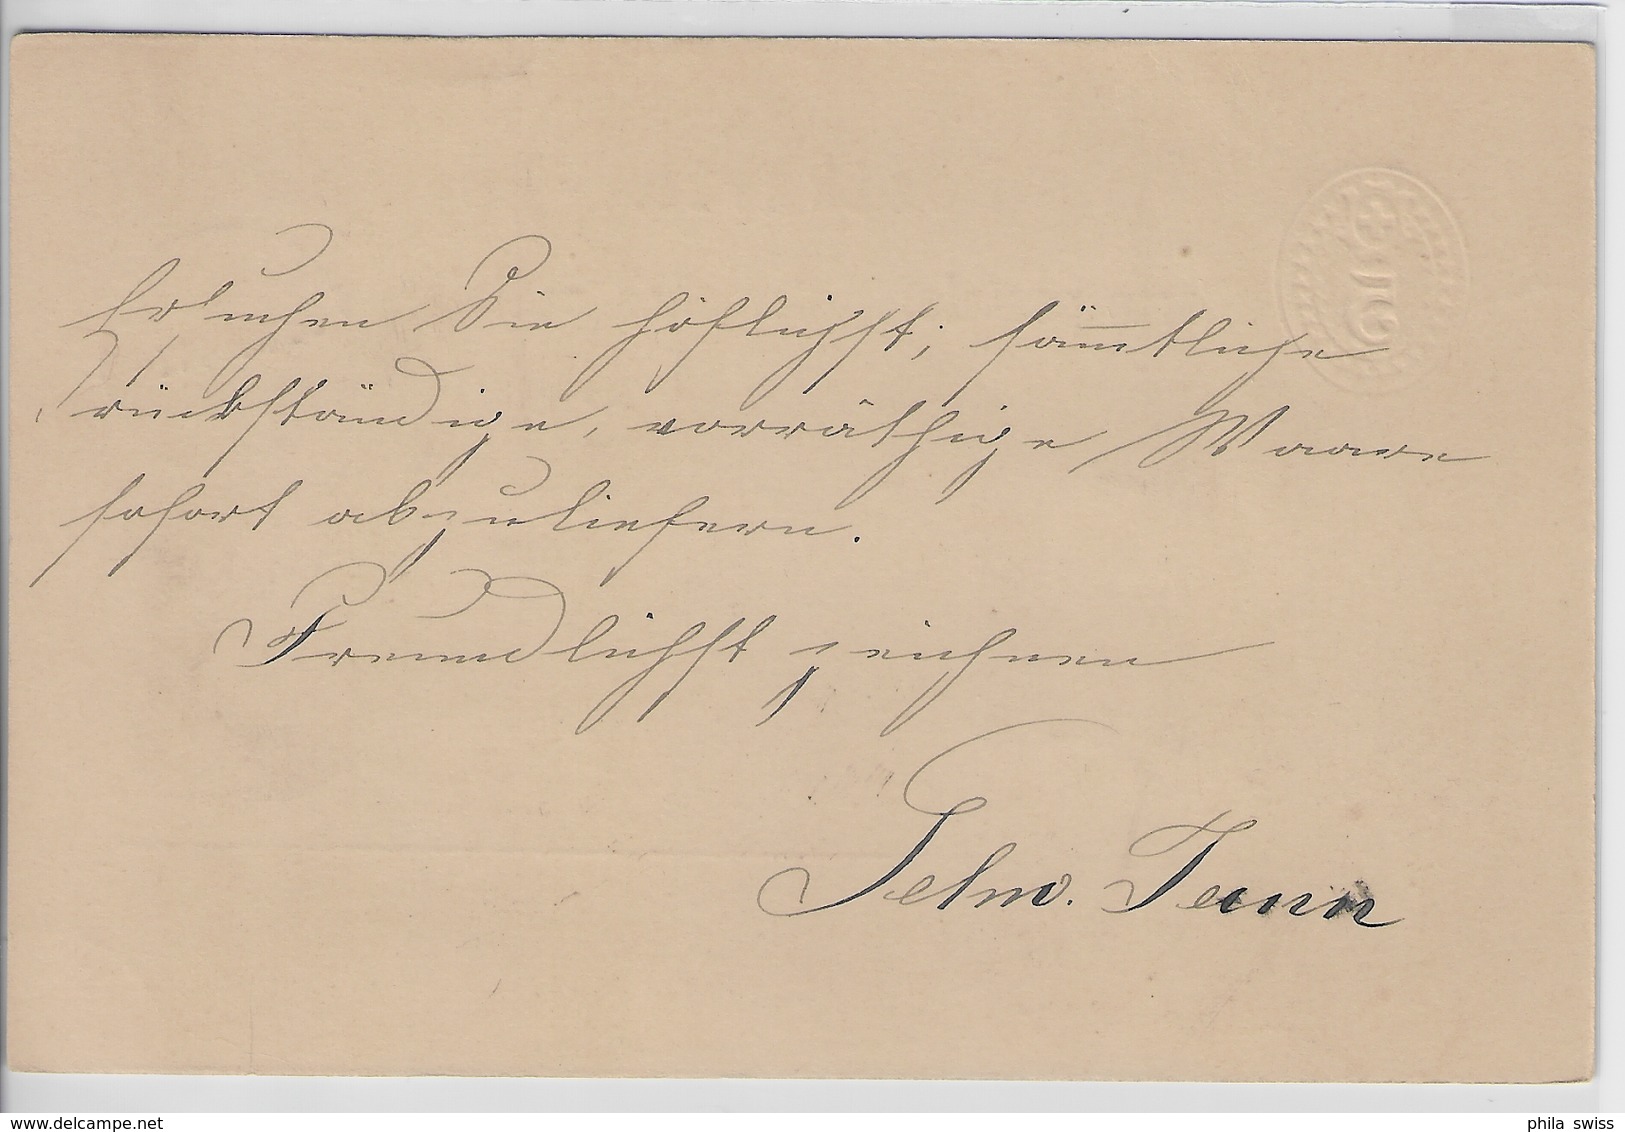 Ersuchen Sie höflichst, sämmtliche
rückständige, vorräthige Waare
sofort abzuliefern.
Freundlichst zeichnen
delcampe.net
phila swiss